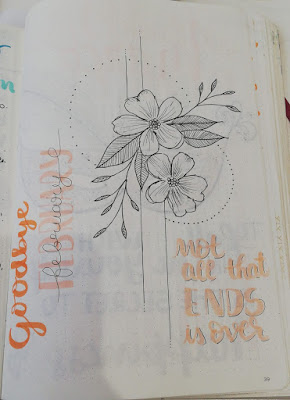 Goodbye
february
not
all that
ENDS
is over